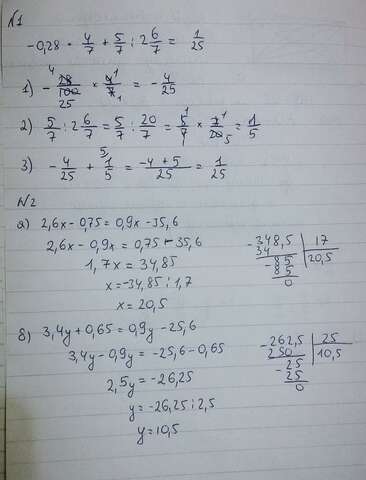 №1
-0,28 · 4/7 + 5/7 : 2 6/7 = 1/25
1) - 28/100 × 4/7 = - 4/25
4 25 1 1
2) 5/7 : 2 6/7 = 5/7 : 20/7 = 5/7 × 7/20 = 1/5
1 1 5
3) - 4/25 + 1/5 = -4+5/25 = 1/25
5
№2
а) 2,6x - 0,75 = 0,9x - 35,6
2,6x - 0,9x = 0,75 - 35,6
1,7x = 34,85
x = -34,85 : 1,7
x = 20,5
-348,5 | 17
34 | 20,5
-85
85
0
б) 3,4y + 0,65 = 0,9y - 25,6
3,4y - 0,9y = -25,6 - 0,65
2,5y = -26,25
y = -26,25 : 2,5
y = 10,5
-262,5 | 25
250 | 10,5
-25
25
0